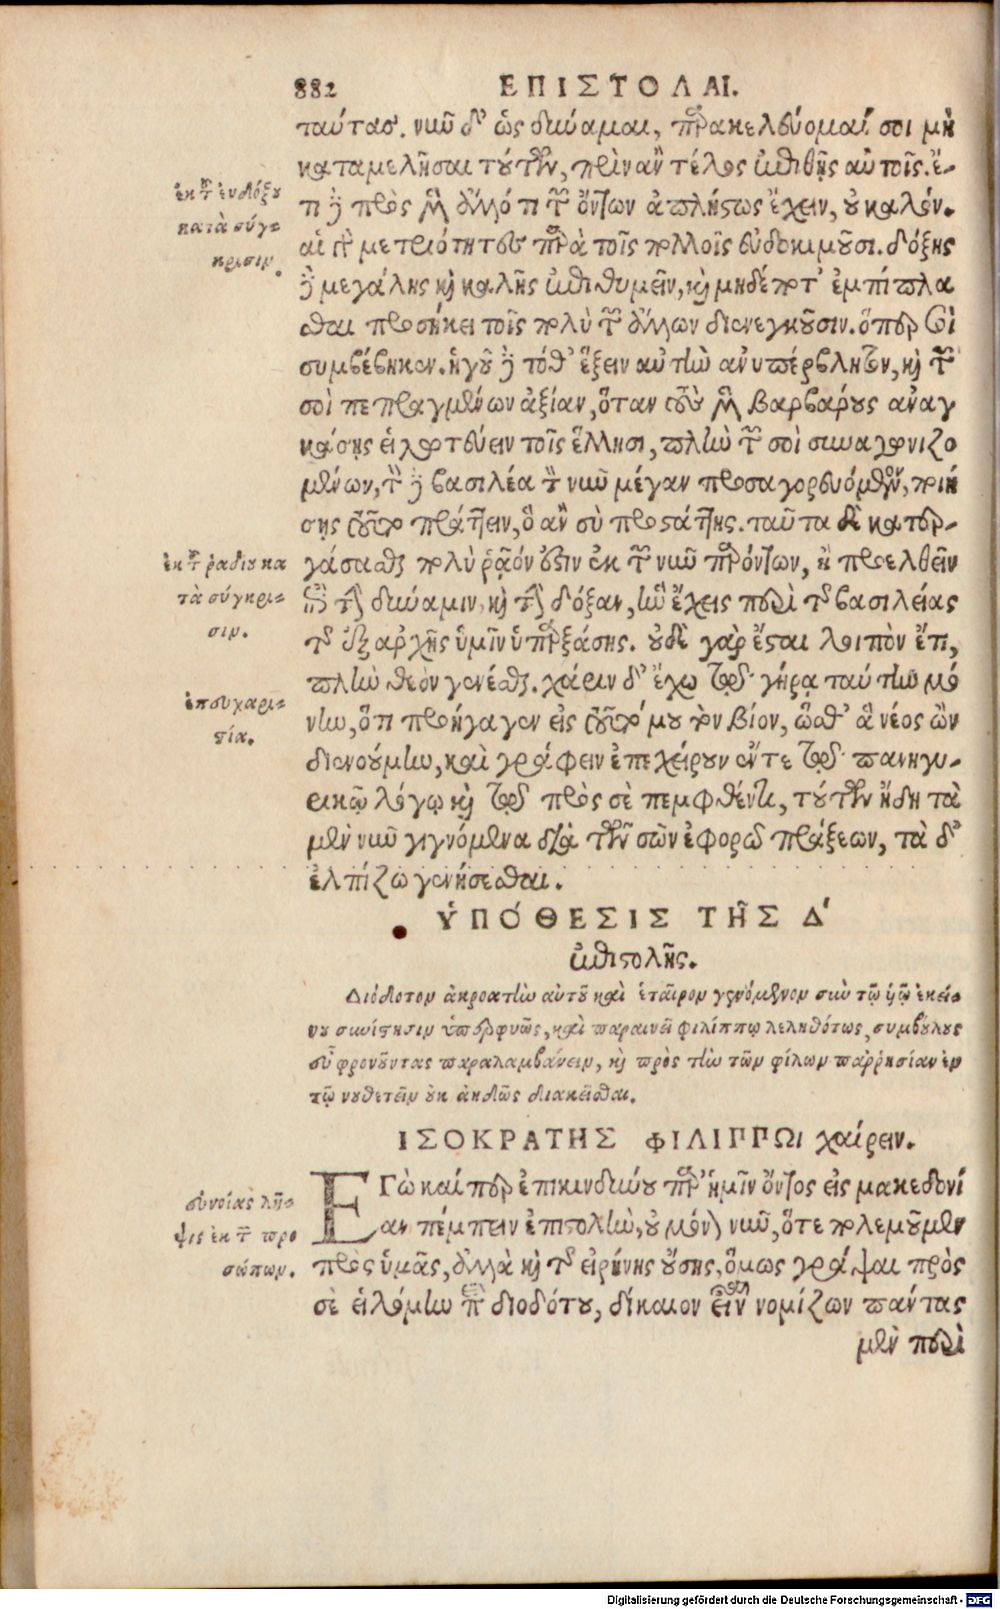 882 ΕΠΙΣΤΟΛΑΙ.
ταύτας. νῦν δ' ὡς δύναμαι, παρακελεύομαί σοι μὴ
καταμελῆσαι τούτων, πρὶν ἂν τέλος ἐπιθῇς αὐτοῖς. ἔ-
ἐκ τοῦ ἐνδόξου
κατὰ σύγ-
κρισιν.
τι δὲ πρὸς μὲν ἄλλό τι τῶν ὄντων ἀπλήστως ἔχειν, οὐ καλόν.
αἱ γὰρ μετριότητες παρὰ τοῖς πολλοῖς εὐδοκιμοῦσι. δόξης
δὲ μεγάλης καὶ καλῆς ἐπιθυμεῖν, καὶ μηδέποτ' ἐμπίπλα
σθαι προσήκει τοῖς πολὺ τῶν ἄλλων διενεγκοῦσιν. ὅπερ σοὶ
συμβέβηκεν. ἡγοῦ δὲ τόθ' ἕξειν αὐτὴν ἀνυπέρβλητον, καὶ τῶν
σοὶ πεπραγμένων ἀξίαν, ὅταν τοὺς μὲν βαρβάρους ἀναγ
κάσῃς εἱλωτεύειν τοῖς ἕλλησι, πλὴν τῶν σοὶ συναγωνιζο
μένων, τὸν δὲ βασιλέα τὸν νῦν μέγαν προσαγορευόμενον, ποιή
σῃς τοῦτο πράττειν, ὃ ἂν σὺ προστάττῃς. ταῦτα δὲ κατερ-
ἐκ τοῦ ῥᾳδίου κα
τὰ σύγκρι-
σιν.
γάσασθαι πολὺ ῥᾷόν ἐστιν ἐκ τῶν νῦν παρόντων, ἢ προελθεῖν
ἐπὶ τὴν δύναμιν, καὶ τὴν δόξαν, ἣν ἔχεις περὶ τῆς βασιλείας
τῆς ἐξ ἀρχῆς ὑμῖν ὑπαρξάσης. οὐδὲ γὰρ ἔσται λοιπὸν ἔτι,
ἐπευχαρι-
στία.
πλὴν θεὸν γενέσθαι. χάριν δ' ἔχω τῷ γήρᾳ ταύτην μό
νην, ὅτι προήγαγεν εἰς τοῦτό μου τὸν βίον, ὥσθ' ἃ νέος ὢν
διενοούμην, καὶ γράφειν ἐπεχείρουν ἔν τε τῷ πανηγυ-
ρικῷ λόγῳ καὶ τῷ πρὸς σὲ πεμφθέντι, τούτων ἤδη τὰ
μὲν νῦν γιγνόμενα διὰ τῶν σῶν ἐφορῶ πράξεων, τὰ δ'
ἐλπίζω γενήσεσθαι.
ὙΠΟΘΕΣΙΣ ΤΗ͂Σ Δ'
ἐπιστολῆς.
Διόδοτον ἀκροατὴν αὐτοῦ καὶ ἑταῖρον γενόμενον σὺν τῷ υἱῷ ἐκεί-
νου συνίστησιν ὑπερφυῶς, καὶ παραινεῖ φιλίππῳ λεληθότως, συμβούλους
εὖ φρονοῦντας παραλαμβάνειν, καὶ πρὸς τὴν τῶν φίλων παρρησίαν ἐν
τῷ νουθετεῖν οὐκ ἀηδῶς διακεῖσθαι.
ΙΣΟΚΡΑΤΗΣ ΦΙΛΙΠΠΩι χαίρειν.
εὐνοίας λῆ-
ψις ἐκ τῶν προ
σώπων.
ΕΓὼ καίπερ ἐπικινδύνου παρ' ἡμῖν ὄντος εἰς μακεδονί
αν πέμπειν ἐπιστολὴν, οὐ μόνον νῦν, ὅτε πολεμοῦμεν
πρὸς ὑμᾶς, ἀλλὰ καὶ τῆς εἰρήνης οὔσης, ὅμως γράψαι πρὸς
σὲ εἱλόμην περὶ διοδότου, δίκαιον εἶναι νομίζων πάντας
μὲν περὶ
Digitalisierung gefördert durch die Deutsche Forschungsgemeinschaft - DFG